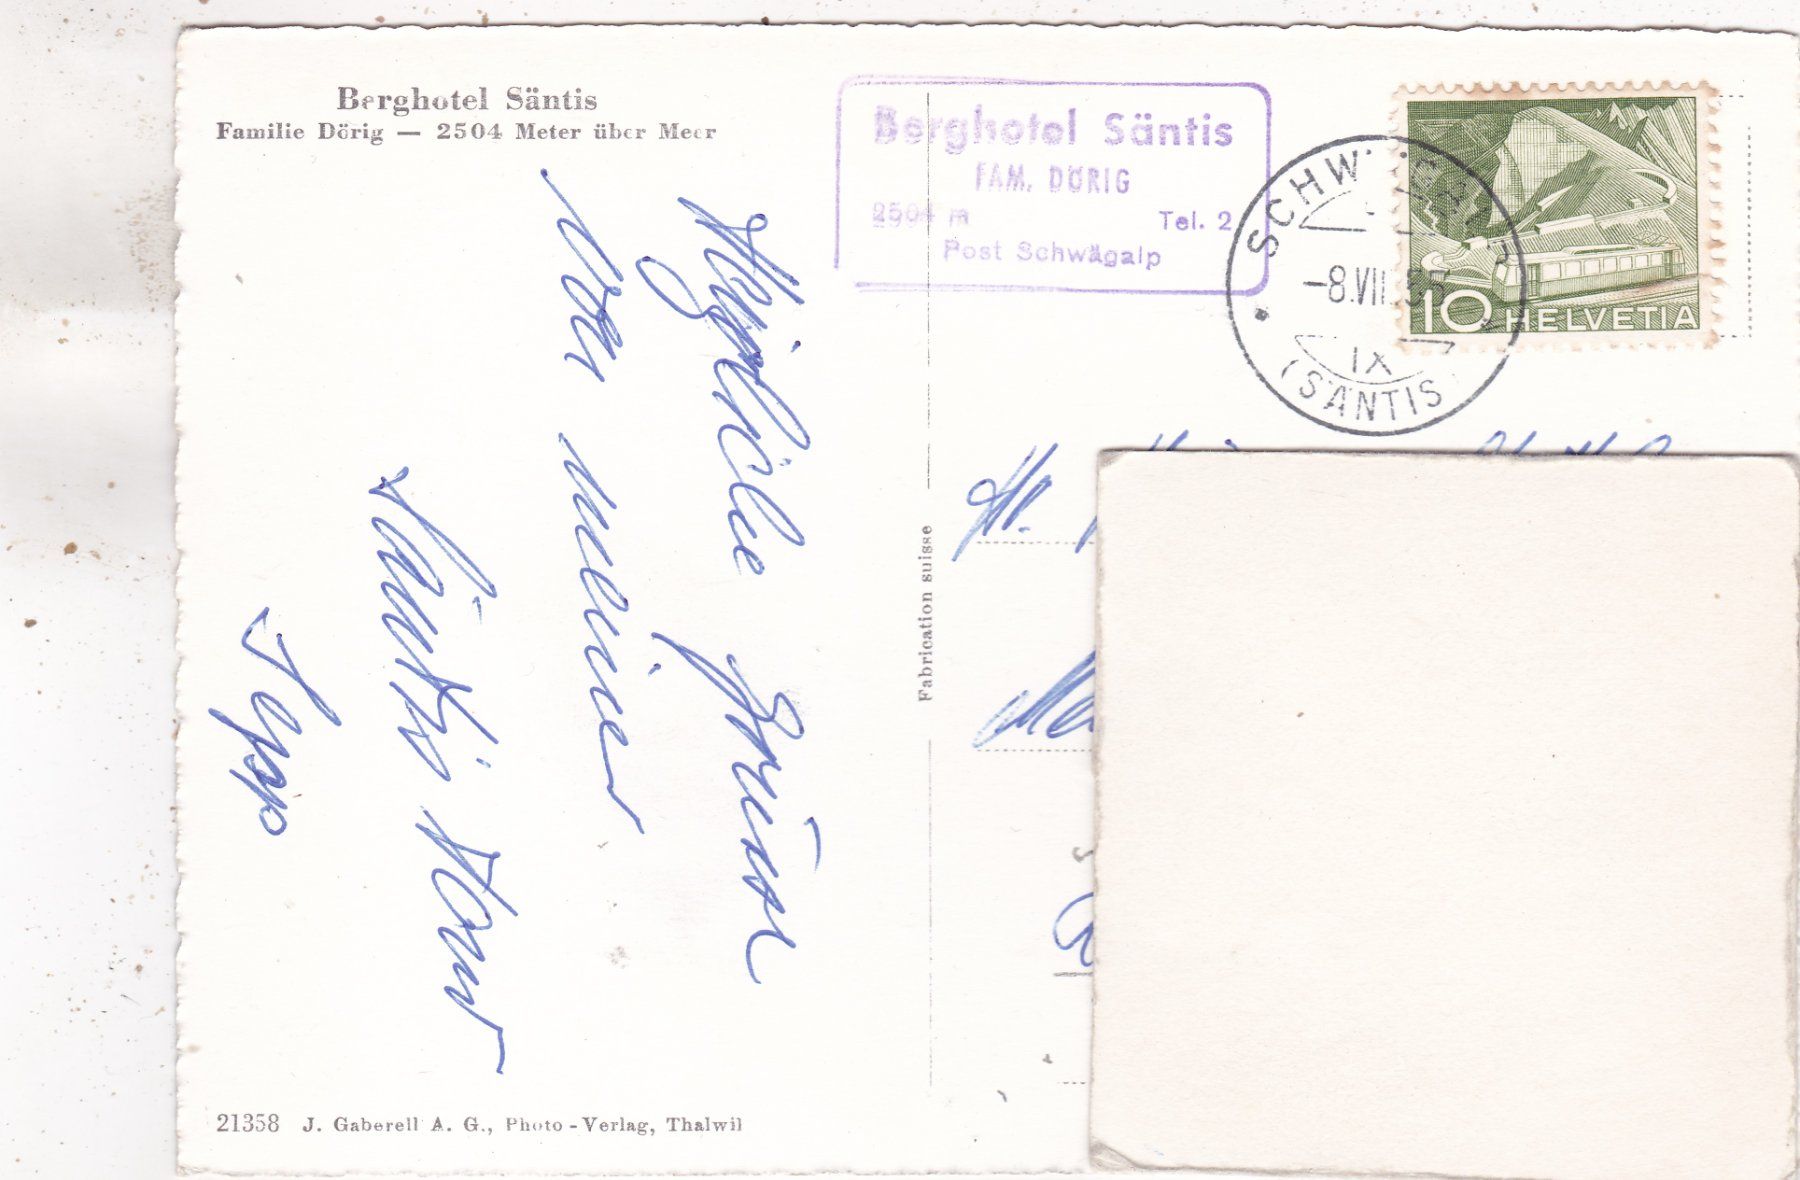 Berghotel Säntis
Familie Dörig — 2504 Meter über Meer
Berghotel Säntis
FAM. DÖRIG
2504 m Tel. 2
Post Schwägalp
-8.VII
IX
(SÄNTIS)
10 HELVETIA
Herzliche Grüsse
von meiner
Säntis
Sepp
Fabrication suisse
Hr.
21358 J. Gaberell A. G., Photo - Verlag, Thalwil